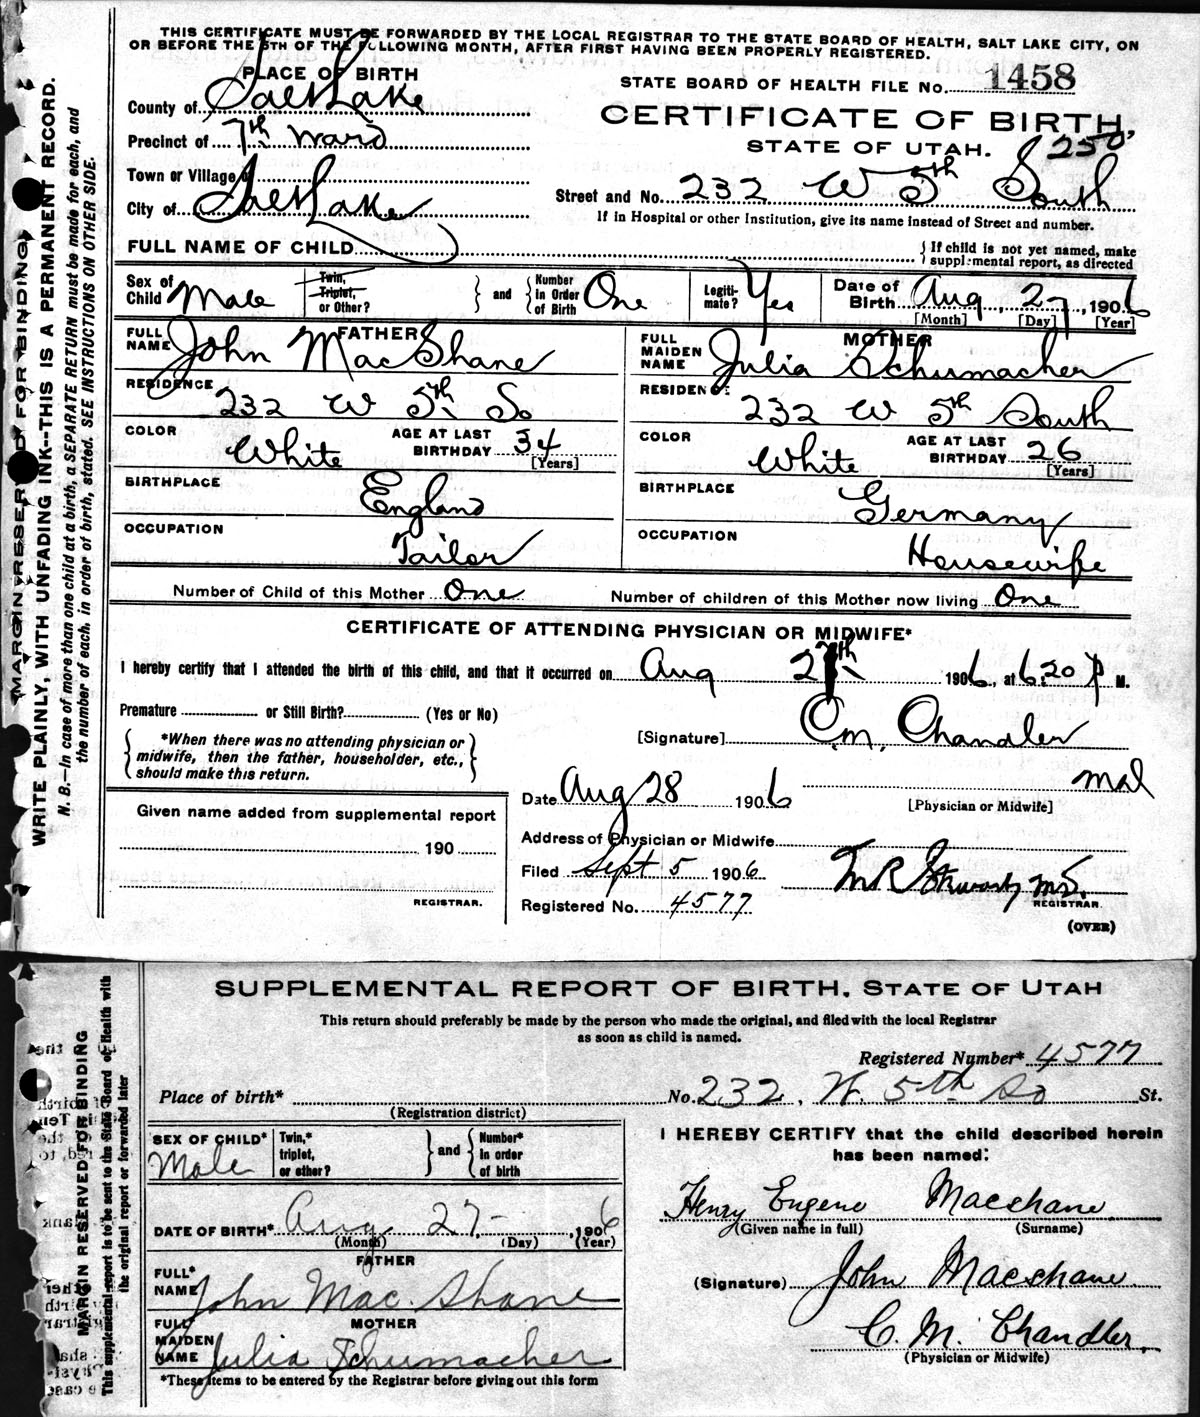 THIS CERTIFICATE MUST BE FORWARDED BY THE LOCAL REGISTRAR TO THE STATE BOARD OF HEALTH, SALT LAKE CITY, ON
OR BEFORE THE 5TH OF THE FOLLOWING MONTH, AFTER FIRST HAVING BEEN PROPERLY REGISTERED.
PLACE OF BIRTH
STATE BOARD OF HEALTH FILE No. 1458
County of Salt Lake
CERTIFICATE OF BIRTH,
Precinct of 7th Ward
STATE OF UTAH. 250
Town or Village of
Street and No. 232 W 5th South
City of Salt Lake
If in Hospital or other Institution, give its name instead of Street and number.
FULL NAME OF CHILD
{If child is not yet named, make
supplemental report, as directed
Sex of Child Male
Twin, Triplet, or Other?
} and { Number in Order of Birth One
Legitimate? Yes
Date of Birth Aug 27, 1906
[Month] [Day] [Year]
FATHER
FULL NAME John MacShane
RESIDENCE
232 W 5th So
COLOR White AGE AT LAST BIRTHDAY 34
[Years]
BIRTHPLACE
England
OCCUPATION
Tailor
MOTHER
FULL MAIDEN NAME Julia Schumacher
RESIDENCE
232 W 5th South
COLOR White AGE AT LAST BIRTHDAY 26
[Years]
BIRTHPLACE
Germany
OCCUPATION
Housewife
Number of Child of this Mother One Number of children of this Mother now living One
CERTIFICATE OF ATTENDING PHYSICIAN OR MIDWIFE*
I hereby certify that I attended the birth of this child, and that it occurred on Aug 27th 1906, at 6:20 P M.
Premature or Still Birth? (Yes or No)
{*When there was no attending physician or
midwife, then the father, householder, etc.,
should make this return.}
[Signature] C.M. Chandler
Date Aug 28 1906
[Physician or Midwife]
Given name added from supplemental report
190
REGISTRAR.
Address of Physician or Midwife
Filed Sept 5 1906
REGISTRAR.
Registered No. 4577
(OVER)
MARGIN RESERVED FOR BINDING
WRITE PLAINLY, WITH UNFADING INK--THIS IS A PERMANENT RECORD.
N. B.—In case of more than one child at a birth, a SEPARATE RETURN must be made for each, and
the number of each, in order of birth, stated. SEE INSTRUCTIONS ON OTHER SIDE.
SUPPLEMENTAL REPORT OF BIRTH, STATE OF UTAH
This return should preferably be made by the person who made the original, and filed with the local Registrar
as soon as child is named.
Registered Number* 4577
Place of birth* No. 232. W. 5th So St.
(Registration district)
SEX OF CHILD* Male
Twin,* triplet, or other?
} and { Number* in order of birth
DATE OF BIRTH* Aug 27 1906
(Month) (Day) (Year)
FATHER
FULL* NAME John Mac. Shane
MOTHER
FULL MAIDEN NAME Julia Schumacher
*These items to be entered by the Registrar before giving out this form
I HEREBY CERTIFY that the child described herein
has been named:
Henry Eugene Macshane
(Given name in full) (Surname)
(Signature) John Macshane
C. M. Chandler
(Physician or Midwife)
MARGIN RESERVED FOR BINDING
This supplemental report is to be sent to the State Board of Health with
the original report or forwarded later